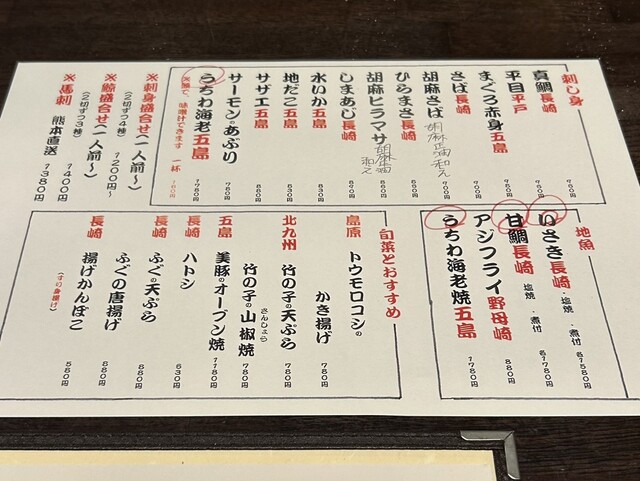 刺し身
真鯛 長崎 780円
平目 平戸 980円
まぐろ赤身 五島 780円
さば 長崎
胡麻さば 胡麻醤油和え 900円
ひらまさ 長崎 880円
胡麻ヒラマサ 胡麻醤油和え 980円
しまあじ 長崎
水いか 五島
地だこ 五島 830円
サザエ 五島 880円
サーモンのあぶり 780円
うちわ海老 五島 1780円
刺身盛合せ(一人前〜)
(2切ずつ3種) 1400円
鯨盛合せ(一人前〜)
(2切ずつ4種) 1200円〜
※馬刺 熊本直送 1380円
地魚
いさき 長崎 ・塩焼 ・煮付 各1580円
甘鯛 長崎 ・塩焼 ・煮付 各1780円
アジフライ 野母崎 880円
うちわ海老焼 五島 1780円
旬菜とおすすめ
島原 トウモロコシの
かき揚げ 780円
北九州 竹の子の天ぷら 780円
竹の子の山椒焼 780円
さんしょう
五島 美豚のオーブン焼 1180円
長崎 ハトシ 630円
長崎 ふぐの天ぷら 880円
ふぐの唐揚げ 880円
長崎 揚げかんぼこ 580円
(すり身揚げ)